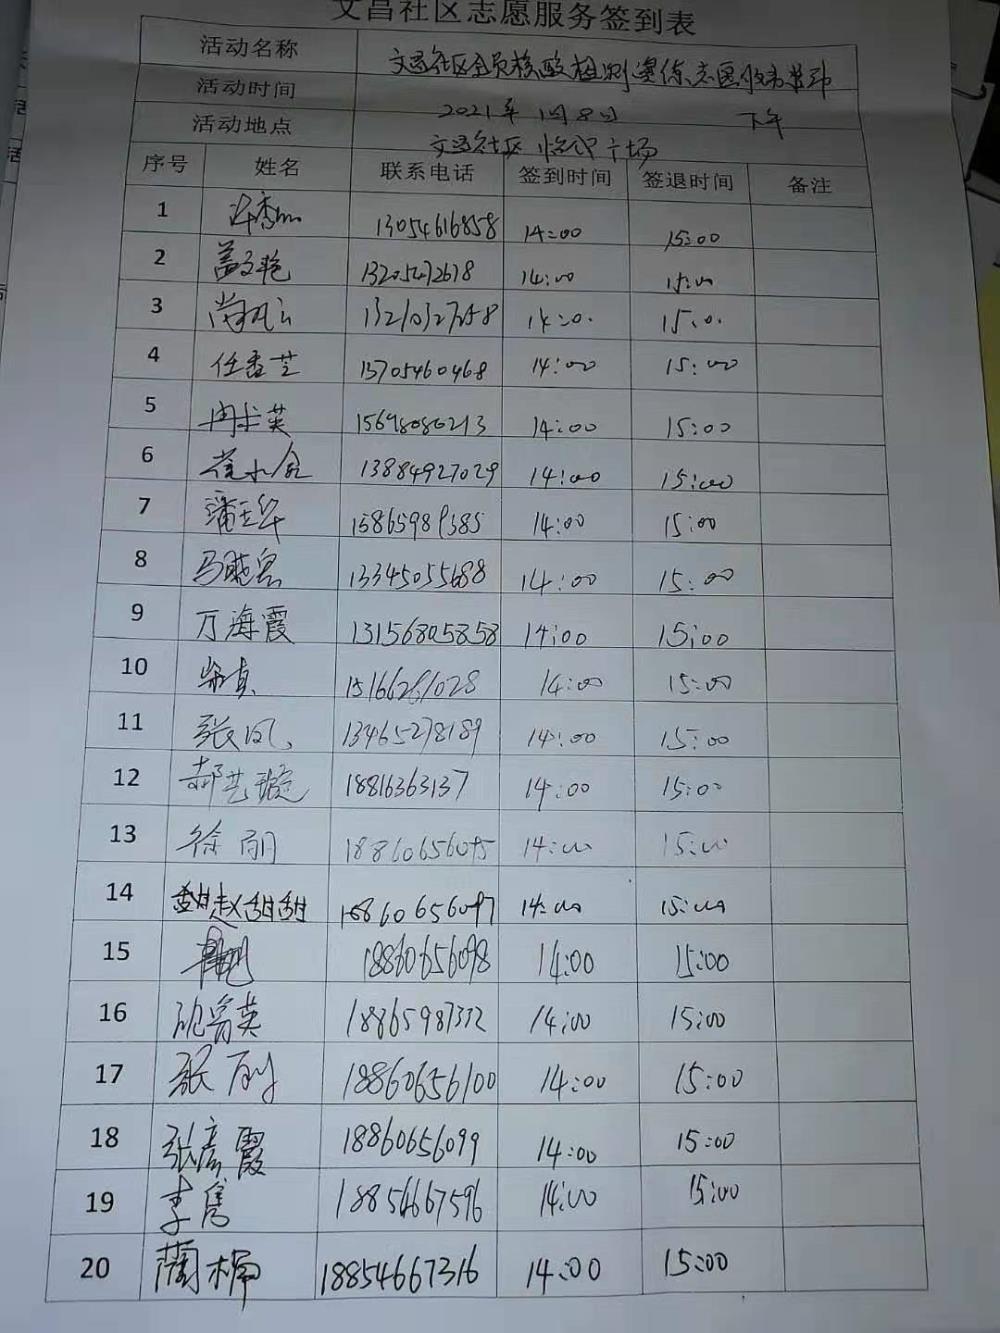 文昌社区志愿服务签到表
活动名称 文昌社区全员核酸检测演练志愿服务活动
活动时间 2021年1月8日 下午
活动地点 文昌社区 广场
序号 姓名 联系电话 签到时间 签退时间 备注
1 13054616858 14:00 15:00
2 盖文艳 13205472618 14:00 15:00
3 尚凤云 14:00 15:00
4 任香芝 15705460468 14:00 15:00
5 冉长英 15698080213 14:00 15:00
6 崔水金 13884927029 14:00 15:00
7 潘玉华 15865989385 14:00 15:00
8 马晓 13345055688 14:00 15:00
9 万海霞 13156805858 14:00 15:00
10 15166281028 14:00 15:00
11 张凤 13465278189 14:00 15:00
12 郝艺璇 18816363137 14:00 15:00
13 徐丽 18860656095 14:00 15:00
14 赵甜甜 18860656097 14:00 15:00
15 18860656098 14:00 15:00
16 英 18865981332 14:00 15:00
17 张 18860656100 14:00 15:00
18 张彦霞 18860656099 14:00 15:00
19 李隽 18854667596 14:00 15:00
20 蔺楠 18854667316 14:00 15:00